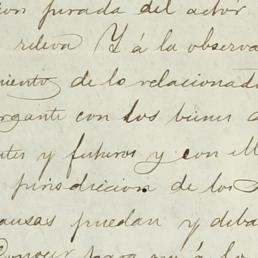 ion jurada del actor
releva Y á la observa
miento de lo relacionado
rgante con los bienes
ntes y futuros y con el
jurisdiccion de los
ausas puedan y deba